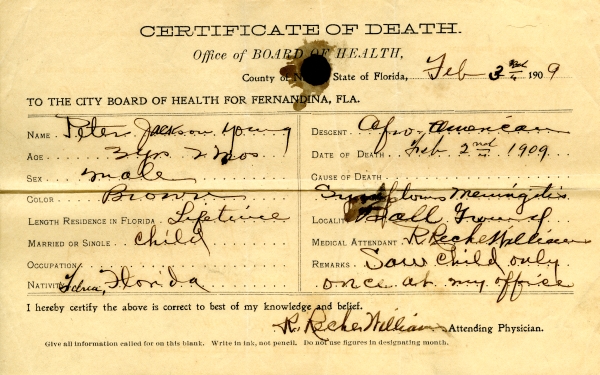 CERTIFICATE OF DEATH.
Office of BOARD OF HEALTH,
County of N State of Florida, Feb 3rd 1909
TO THE CITY BOARD OF HEALTH FOR FERNANDINA, FLA.
NAME Peter Jackson Young
AGE 3 yrs 2 mos
SEX male
COLOR Brown
LENGTH RESIDENCE IN FLORIDA Lifetime
MARRIED OR SINGLE child
OCCUPATION
NATIVITY Florida
DESCENT Afro-American
DATE OF DEATH Feb. 2nd 1909
CAUSE OF DEATH
Symptoms Meningitis
LOCALITY
MEDICAL ATTENDANT R Recke Williams
REMARKS Saw child only
once at my office
I hereby certify the above is correct to best of my knowledge and belief.
R. Recke Williams Attending Physician.
Give all information called for on this blank. Write in ink, not pencil. Do not use figures in designating month.